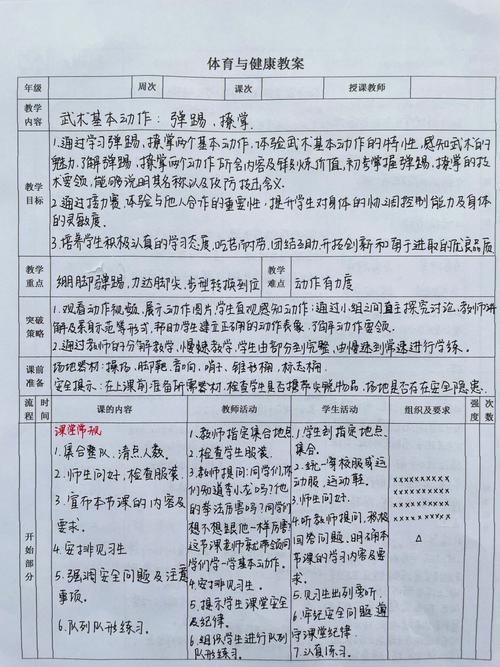 体育与健康教案
年级 周次 课次 授课教师
教学内容 武术基本动作：弹踢、撩掌
教学目标
1.通过学习弹踢、撩掌两个基本动作，体验武术基本动作的特性，感知武术的
魅力，了解弹踢、撩掌两个动作所含内容及锻炼价值，初步掌握弹踢、撩掌的技
术要领，能够说明其名称以及攻防技击含义。
2.通过接力赛，体验与他人合作的重要性，提升学生对身体的协调控制能力及身体
的灵敏度。
3.培养学生积极认真的学习态度，吃苦耐劳、团结互助、开拓创新和勇于进取的优良品质
教学重点 绷脚弹踢，力达脚尖，步型转换到位 教学难点 动作有力度
突破策略
1.观看动作视频，展示动作图片，学生直观感知动作；通过小组之间自主探究讨论，教师讲
解及亲身示范等形式，帮助学生建立正确的动作表象，了解动作要领。
2.通过教师的分解教学、慢速教学，学生由部分到完整，由慢速到常速进行学练。
课前准备
场地器材：操场，脚靶，音响，哨子，锥形桶，标志桶
安全提示：在上课前准备所需器材，检查学生是否携带尖锐物品，场地是否存在安全隐患
流程 时间 课的内容 教师活动 学生活动 组织及要求 强度 次数
开始部分
课堂常规
1.集合整队、清点人数。
2.师生问好，检查服装。
3.宣布本节课的内容及
要求。
4.安排见习生
5.强调安全问题及注意
事项。
6.队列队形练习。
1.教师指定集合地点
2.检查学生服装。
3.教师提问：同学们，你
们知道李小龙吗？他
的拳法厉害吗？同学们
想不想跟他一样厉害
这节课老师就带领同
学们学一学基本动作。
4.安排见习生。
5.提示学生课堂安全
及纪律。
6.组织学生进行队列
队形练习。
1.学生到指定地点
集合。
2.统一穿校服或运
动服、运动鞋。
3.师生问好。
4.听教师提问，积极
回答问题，明确本
节课的学习内容及要
求。
5.见习生出列旁听。
6.牢记安全问题，遵
守课堂纪律。
7.认真练习。
××××××××××
××××××××××
××××××××××
××××××××××
△